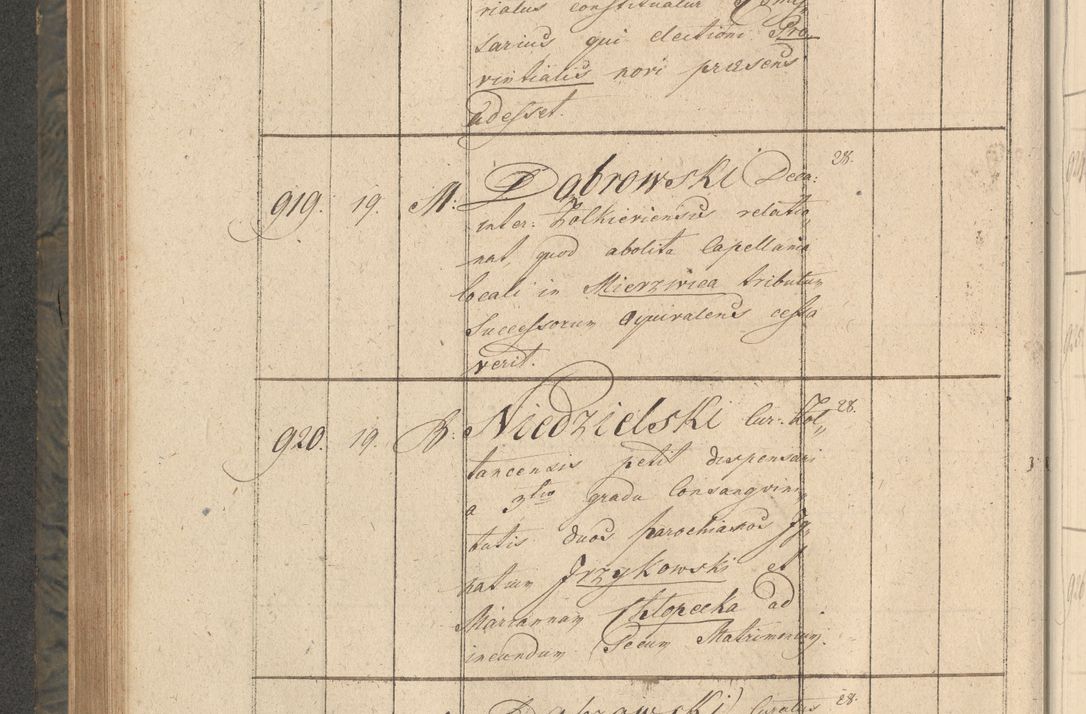 riatus constituatur Comis
sarius qui electioni Pro
vintialis novi præsens
adesset.
919. 19. M: Dąbrowski Deca: 28.
inter. Żolkieviensis relatio
nat, quod abolita Capellania
locali in Mierzwica tributum
Successorum æquivalens cessa
verit.
920. 19. B: Niedzielski Cur: Kol„ 28.
tancensis petit dispensari
a 3tio gradu Consangvini
tatis duos parochianos Ig„
natium Jrzykowski et
Mariannam Chłopecka ad
ineundum Secum Matrimonium.
Curatus 28.